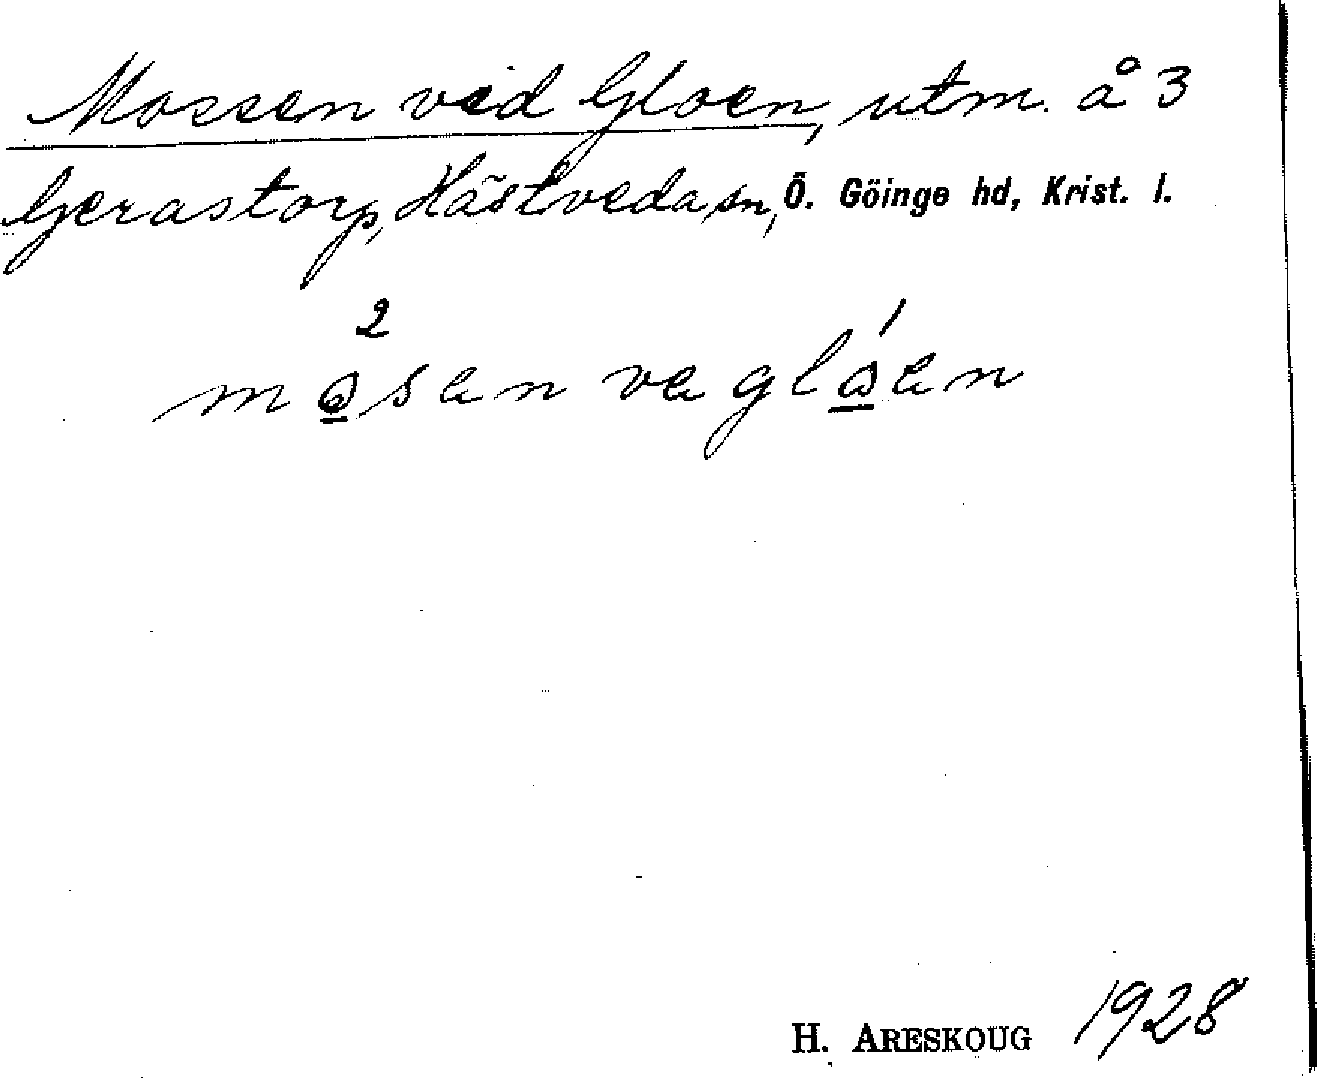 Mossen vid Gloen, utm. å 3
Gerastorp, Hästveda sn, Ö. Göinge hd, Krist. l.
2 /
mɷsen ve glɷen
H. ARESKOUG 1928